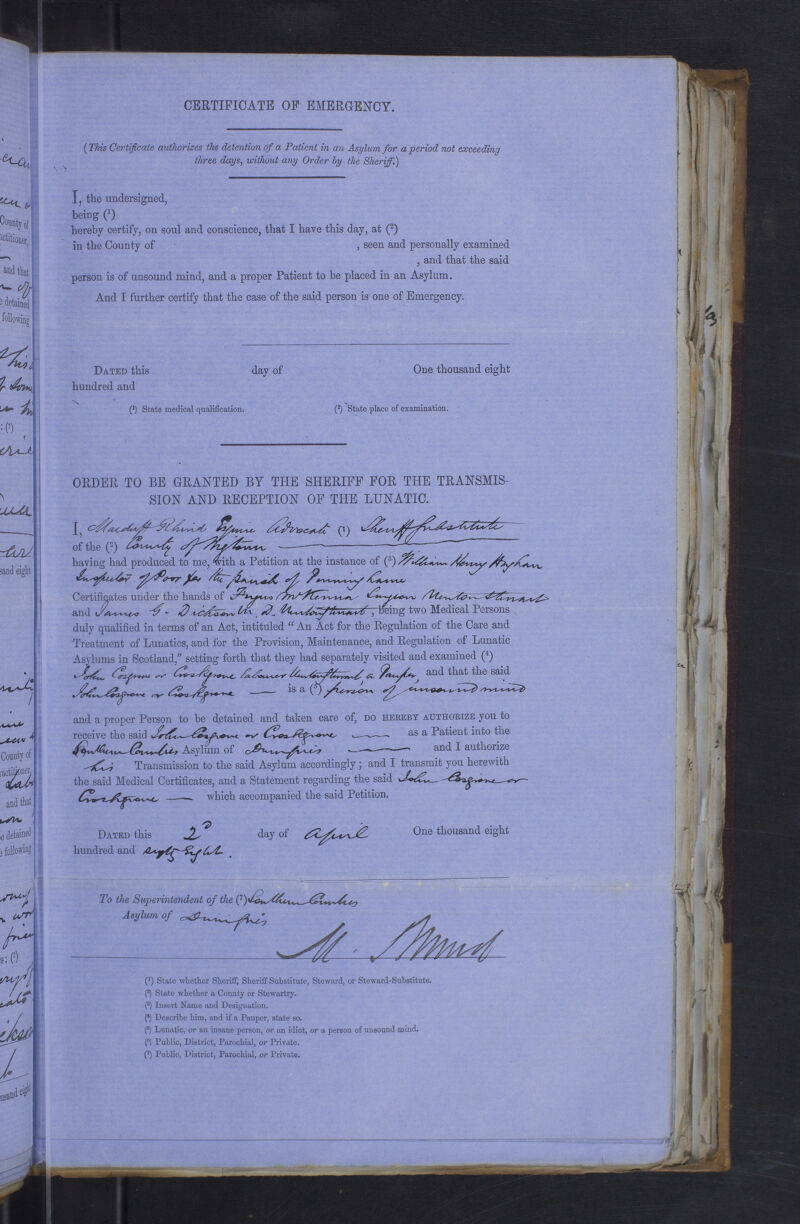 CERTIFICATE OF EMERGENCY.
(This Certificate authorizes the detention of a Patient in an Asylum for a period not exceeding
three days, without any Order by the Sheriff.)
I, the undersigned,
being (1)
hereby certify, on soul and conscience, that I have this day, at (2)
in the County of , seen and personally examined
, and that the said
person is of unsound mind, and a proper Patient to be placed in an Asylum.
And I further certify that the case of the said person is one of Emergency.
DATED this day of One thousand eight
hundred and
(1) State medical qualification. (2) State place of examination.
ORDER TO BE GRANTED BY THE SHERIFF FOR THE TRANSMIS-
SION AND RECEPTION OF THE LUNATIC.
I, Macduff Rhind Esquire Advocate (1) Sheriff Substitute
of the (2) County of Wigtown
having had produced to me, with a Petition at the instance of (3) William Henry
Inspector of Poor for the parish of Penninghame
Certificates under the hands of Fergus McKenna Surgeon Newton Stewart
and James G. Dickson M.D. Newton Stewart, being two Medical Persons
duly qualified in terms of an Act, intituled "An Act for the Regulation of the Care and
Treatment of Lunatics, and for the Provision, Maintenance, and Regulation of Lunatic
Asylums in Scotland," setting forth that they had separately visited and examined (4)
John Cosgrove or Croskgrove labourer Newton Stewart a Pauper, and that the said
John Cosgrove or Croskgrove is a (5) person of unsound mind
and a proper Person to be detained and taken care of, DO HEREBY AUTHORIZE you to
receive the said John Cosgrove or Croskgrove as a Patient into the
Southern Counties Asylum of Dumfries and I authorize
his Transmission to the said Asylum accordingly; and I transmit you herewith
the said Medical Certificates, and a Statement regarding the said John Cosgrove or
Croskgrove which accompanied the said Petition.
DATED this 2d day of April One thousand eight
hundred and sixty Eight.
To the Superintendent of the (7) Southern Counties
Asylum of Dumfries
M. Rhind
(1) State whether Sheriff, Sheriff-Substitute, Steward, or Steward-Substitute.
(2) State whether a County or Stewartry.
(3) Insert Name and Designation.
(4) Describe him, and if a Pauper, state so.
(5) Lunatic, or an insane person, or an idiot, or a person of unsound mind.
(6) Public, District, Parochial, or Private.
(7) Public, District, Parochial, or Private.